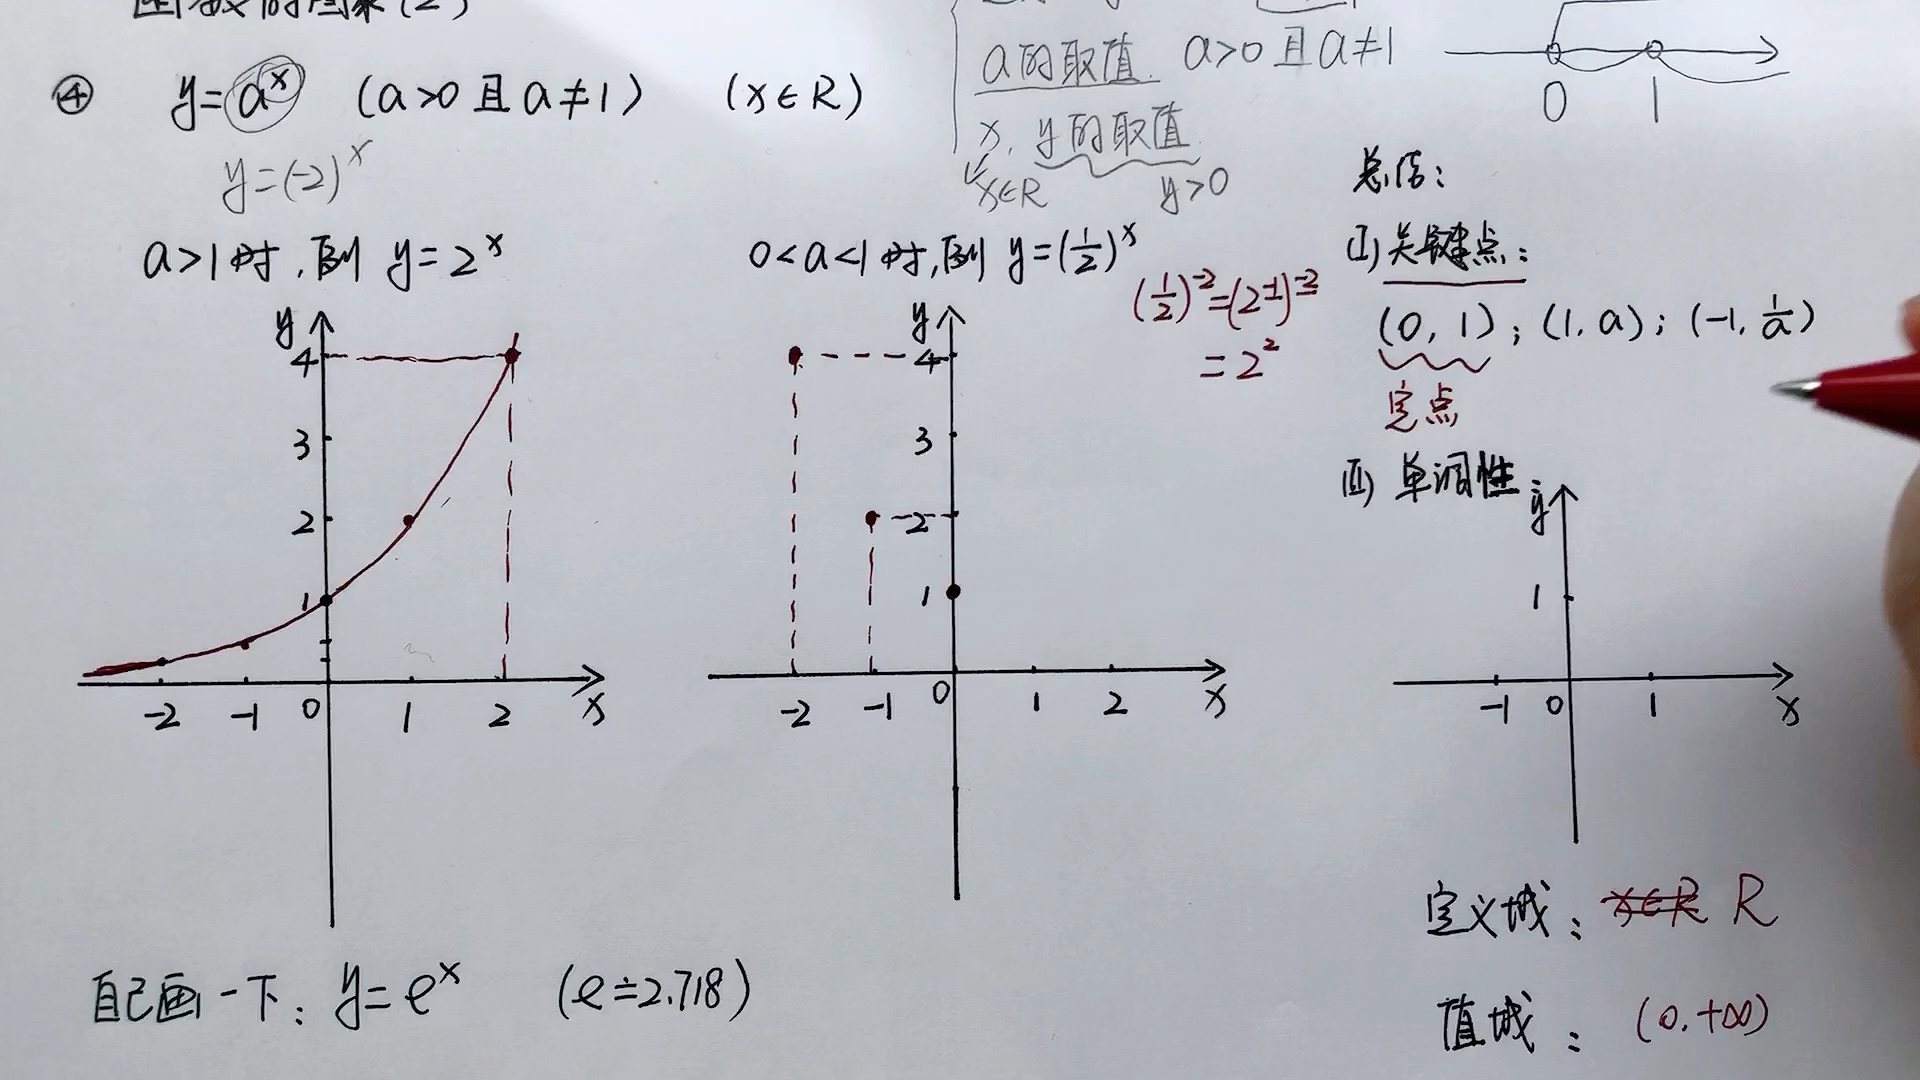 函数的图象(2)
④ y=aˣ (a>0且a≠1) (x∈R)
y=(-2)ˣ
a的取值. a>0且a≠1
x, y的取值
x∈R y>0
0 1
a>1时,例 y=2ˣ
y
4
3
2
1
-2 -1 0 1 2 x
0<a<1时,例 y=(1/2)ˣ
(1/2)⁻²=(2⁻¹)⁻²
=2²
y
4
3
2
1
-2 -1 0 1 2 x
总结:
(I)关键点:
(0,1);(1,a);(-1,1/a)
定点
(II)单调性:
y
1
-1 0 1 x
定义域: x∈R R
值域: (0,+∞)
自己画一下: y=eˣ (e≐2.718)